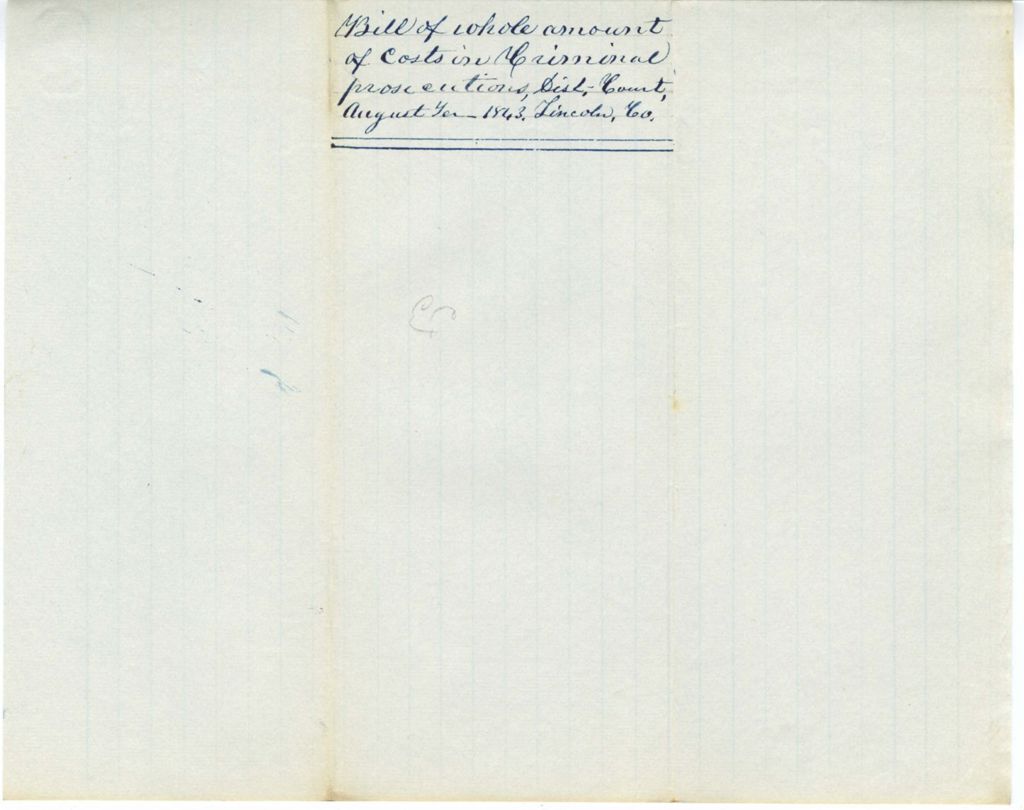 Bill of whole amount
of Costs in Criminal
prosecutions, Dist,- Court,
August Ter— 1843. Lincoln, Co.